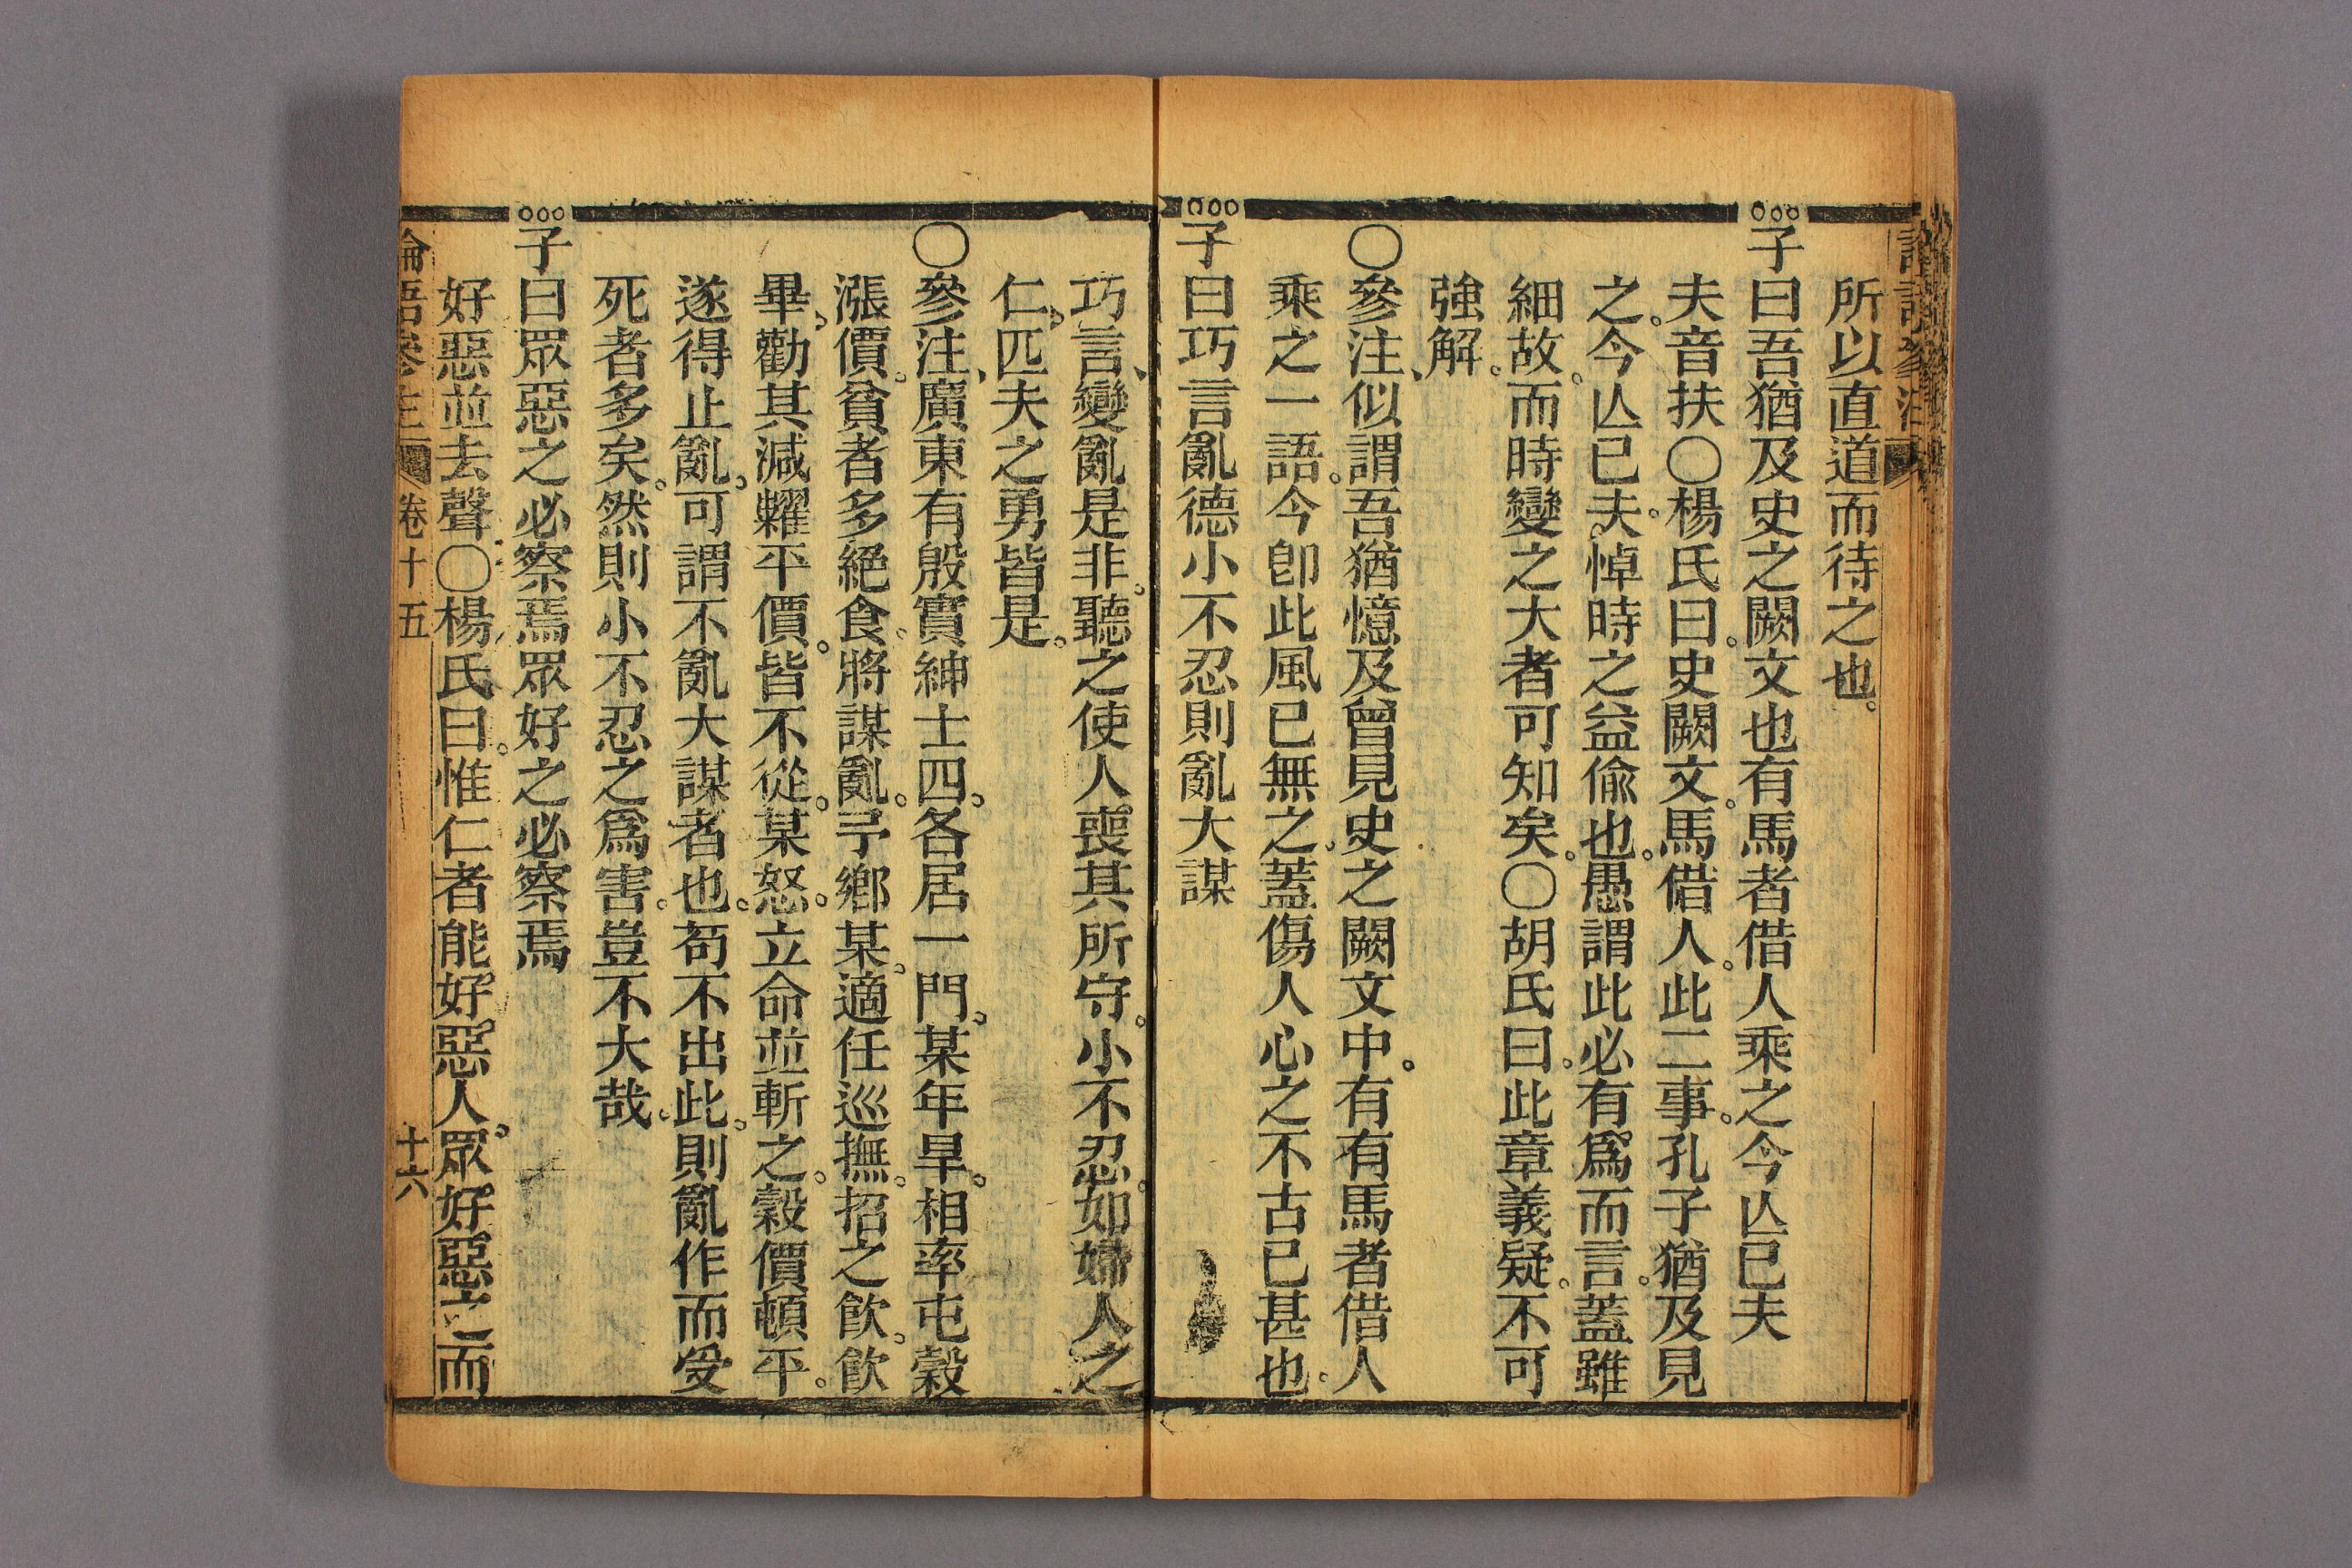 所以直道而待之也。
子曰吾猶及史之闕文也有馬者借人乘之今亾已夫
夫音扶○楊氏曰。史闕文。馬借人。此二事。孔子猶及見
之。今亾已夫。悼時之益偷也。愚謂此必有爲而言。蓋雖
細故。而時變之大者可知矣。○胡氏曰。此章義疑。不可
強解。
○參注、似謂吾猶憶及曾見史之闕文中。有有馬者借人
乘之一語。今卽此風已無之。蓋傷人心之不古已甚也。
子曰巧言亂德小不忍則亂大謀
巧言、變亂是非。聽之使人喪其所守。小不忍。如婦人之
仁。匹夫之勇皆是。
○參注、廣東有殷實紳士四。各居一門。某年旱。相率屯穀
漲價。貧者多絕食。將謀亂。予鄉某。適任巡撫。招之飲。飲
畢。勸其減糶平價。皆不從。某怒。立命並斬之。穀價頓平。
遂得止亂。可謂不亂大謀者也。苟不出此。則亂作而受
死者多矣。然則小不忍之爲害。豈不大哉。
子曰眾惡之必察焉眾好之必察焉
好惡並去聲○楊氏曰。惟仁者能好惡人。眾好惡之而
論語參注 卷十五 十六